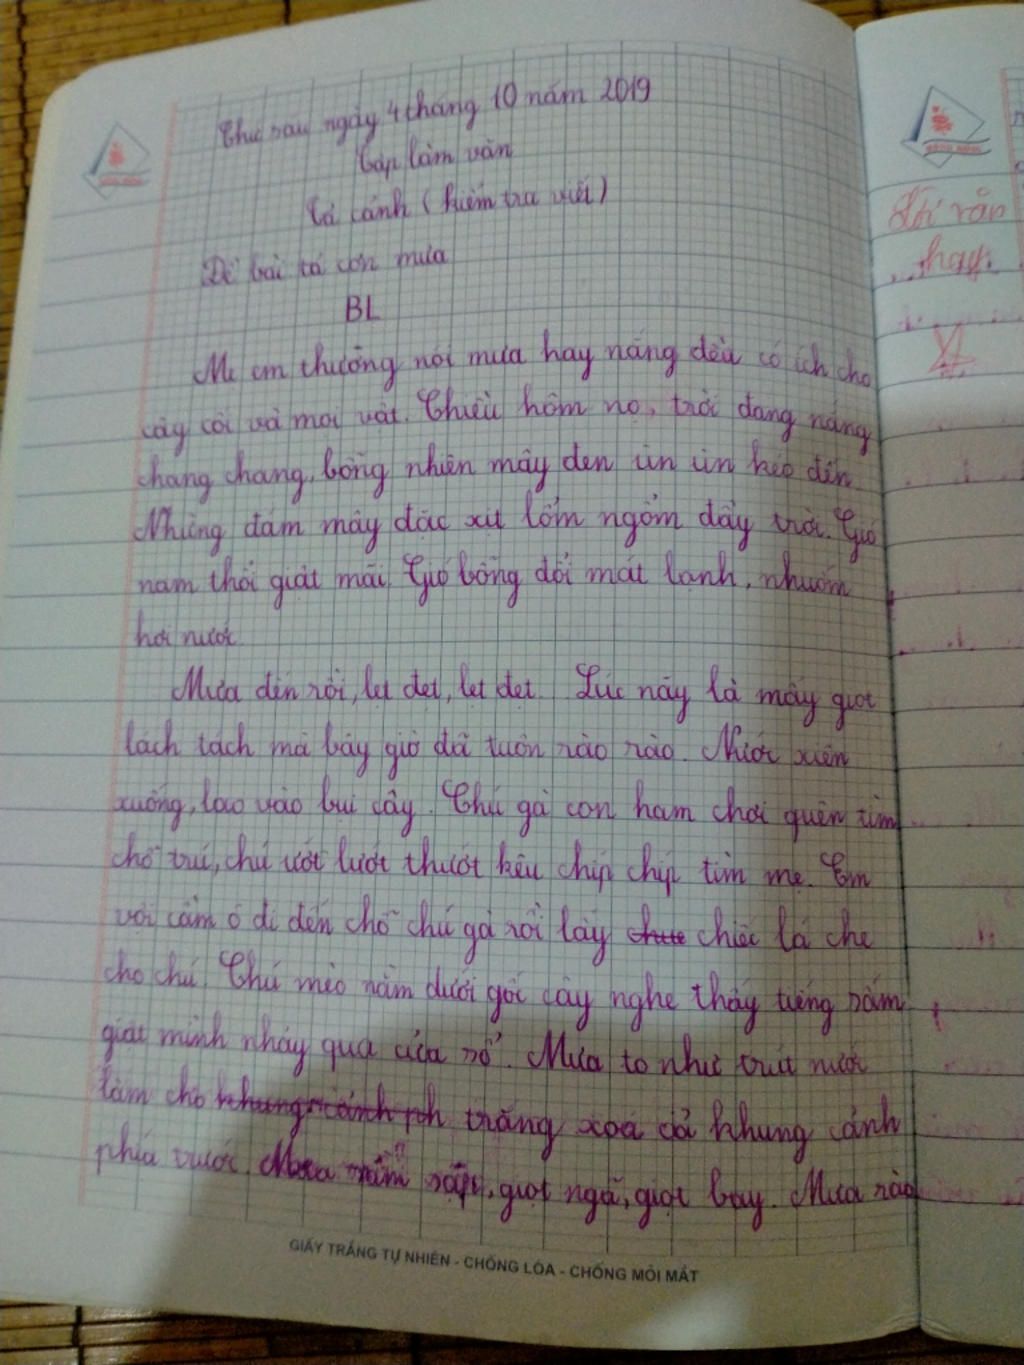 Thứ sáu ngày 4 tháng 10 năm 2019
Tập làm văn
Tả cảnh (kiểm tra viết)
Đề bài tả cơn mưa
BL
Mẹ em thường nói mưa hay nắng đều có ích cho
cây cối và mọi vật. Chiều hôm nọ, trời đang nắng
chang chang, bỗng nhiên mây đen ùn ùn kéo đến.
Những đám mây đặc xịt lổm ngổm đầy trời. Gió
nam thổi giật mãi. Gió bỗng đổi mát lạnh, nhuốm
hơi nước.
Mưa đến rồi, lẹt đẹt, lẹt đẹt. Lúc nãy là mấy giọt
lách tách mà bây giờ đã tuôn rào rào. Nước xiên
xuống, lao vào bụi cây. Chú gà con ham chơi quên tìm
chỗ trú, chú ướt lướt thướt kêu chíp chíp tìm mẹ. Em
vội cầm ô đi đến chỗ chú gà rồi lấy chiếc lá che
cho chú. Chú mèo nằm dưới gốc cây nghe thấy tiếng sấm
giật mình nhảy qua cửa sổ. Mưa to như trút nước
làm cho khung cảnh trắng xoá cả khung cảnh
phía trước. Mưa sầm sập, giọt ngã, giọt bay. Mưa rào
GIẤY TRẮNG TỰ NHIÊN - CHỐNG LÓA - CHỐNG MỎI MẮT
văn
hay